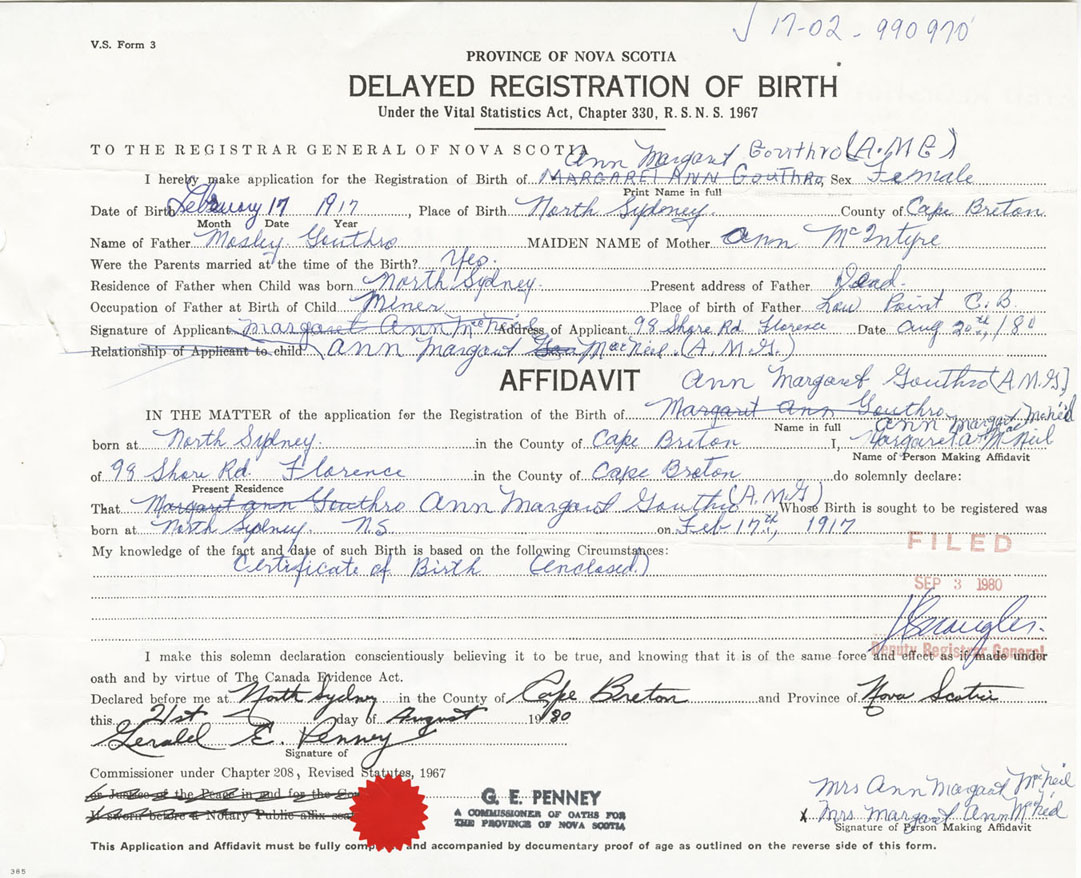 √ 17-02-990970
V.S. Form 3
PROVINCE OF NOVA SCOTIA
DELAYED REGISTRATION OF BIRTH
Under the Vital Statistics Act, Chapter 330, R.S.N.S. 1967
TO THE REGISTRAR GENERAL OF NOVA SCOTIA
Ann Margaret Gouthro (A.M.G)
I hereby make application for the Registration of Birth of MARGARET ANN GOUTHRO, Sex Female
Print Name in full
Date of Birth February 17 1917, Place of Birth North Sydney. County of Cape Breton.
Month Date Year
Name of Father Mosley Gouthro MAIDEN NAME of Mother Ann McIntyre
Were the Parents married at the time of the Birth? Yes.
Residence of Father when Child was born North Sydney. Present address of Father Dead.
Occupation of Father at Birth of Child Miner Place of birth of Father Low Point C.B.
Signature of Applicant Margaret Ann McNeil Address of Applicant 98 Shore Rd. Florence Date Aug 20th, /80
Relationship of Applicant to child Ann Margaret MacNeil. (A.M.G.)
AFFIDAVIT
Ann Margaret Gouthro (A.M.G.)
IN THE MATTER of the application for the Registration of the Birth of Margaret Ann Gouthro
Name in full Ann Margaret McNeil
born at North Sydney. in the County of Cape Breton I, Margaret A. McNeil
Name of Person Making Affidavit
of 98 Shore Rd. Florence in the County of Cape Breton do solemnly declare:
Present Residence
That Margaret Ann Gouthro Ann Margaret Gouthro (A.M.G) Whose Birth is sought to be registered was
born at North Sydney. N.S. on Feb 17th, 1917
My knowledge of the fact and date of such Birth is based on the following Circumstances:
Certificate of Birth (enclosed.)
FILED
SEP 3 1980
Deputy Registrar General
I make this solemn declaration conscientiously believing it to be true, and knowing that it is of the same force and effect as if made under
oath and by virtue of The Canada Evidence Act.
Declared before me at North Sydney in the County of Cape Breton and Province of Nova Scotia
this 21st day of August 1980
Gerald E. Penney
Signature of
Commissioner under Chapter 208, Revised Statutes, 1967
or Justice of the Peace in and for the
If sworn before a Notary Public affix seal
G. E. PENNEY
A COMMISSIONER OF OATHS FOR
THE PROVINCE OF NOVA SCOTIA
Mrs Ann Margaret McNeil
x Mrs Margaret Ann McNeil
Signature of Person Making Affidavit
This Application and Affidavit must be fully and accompanied by documentary proof of age as outlined on the reverse side of this form.
385